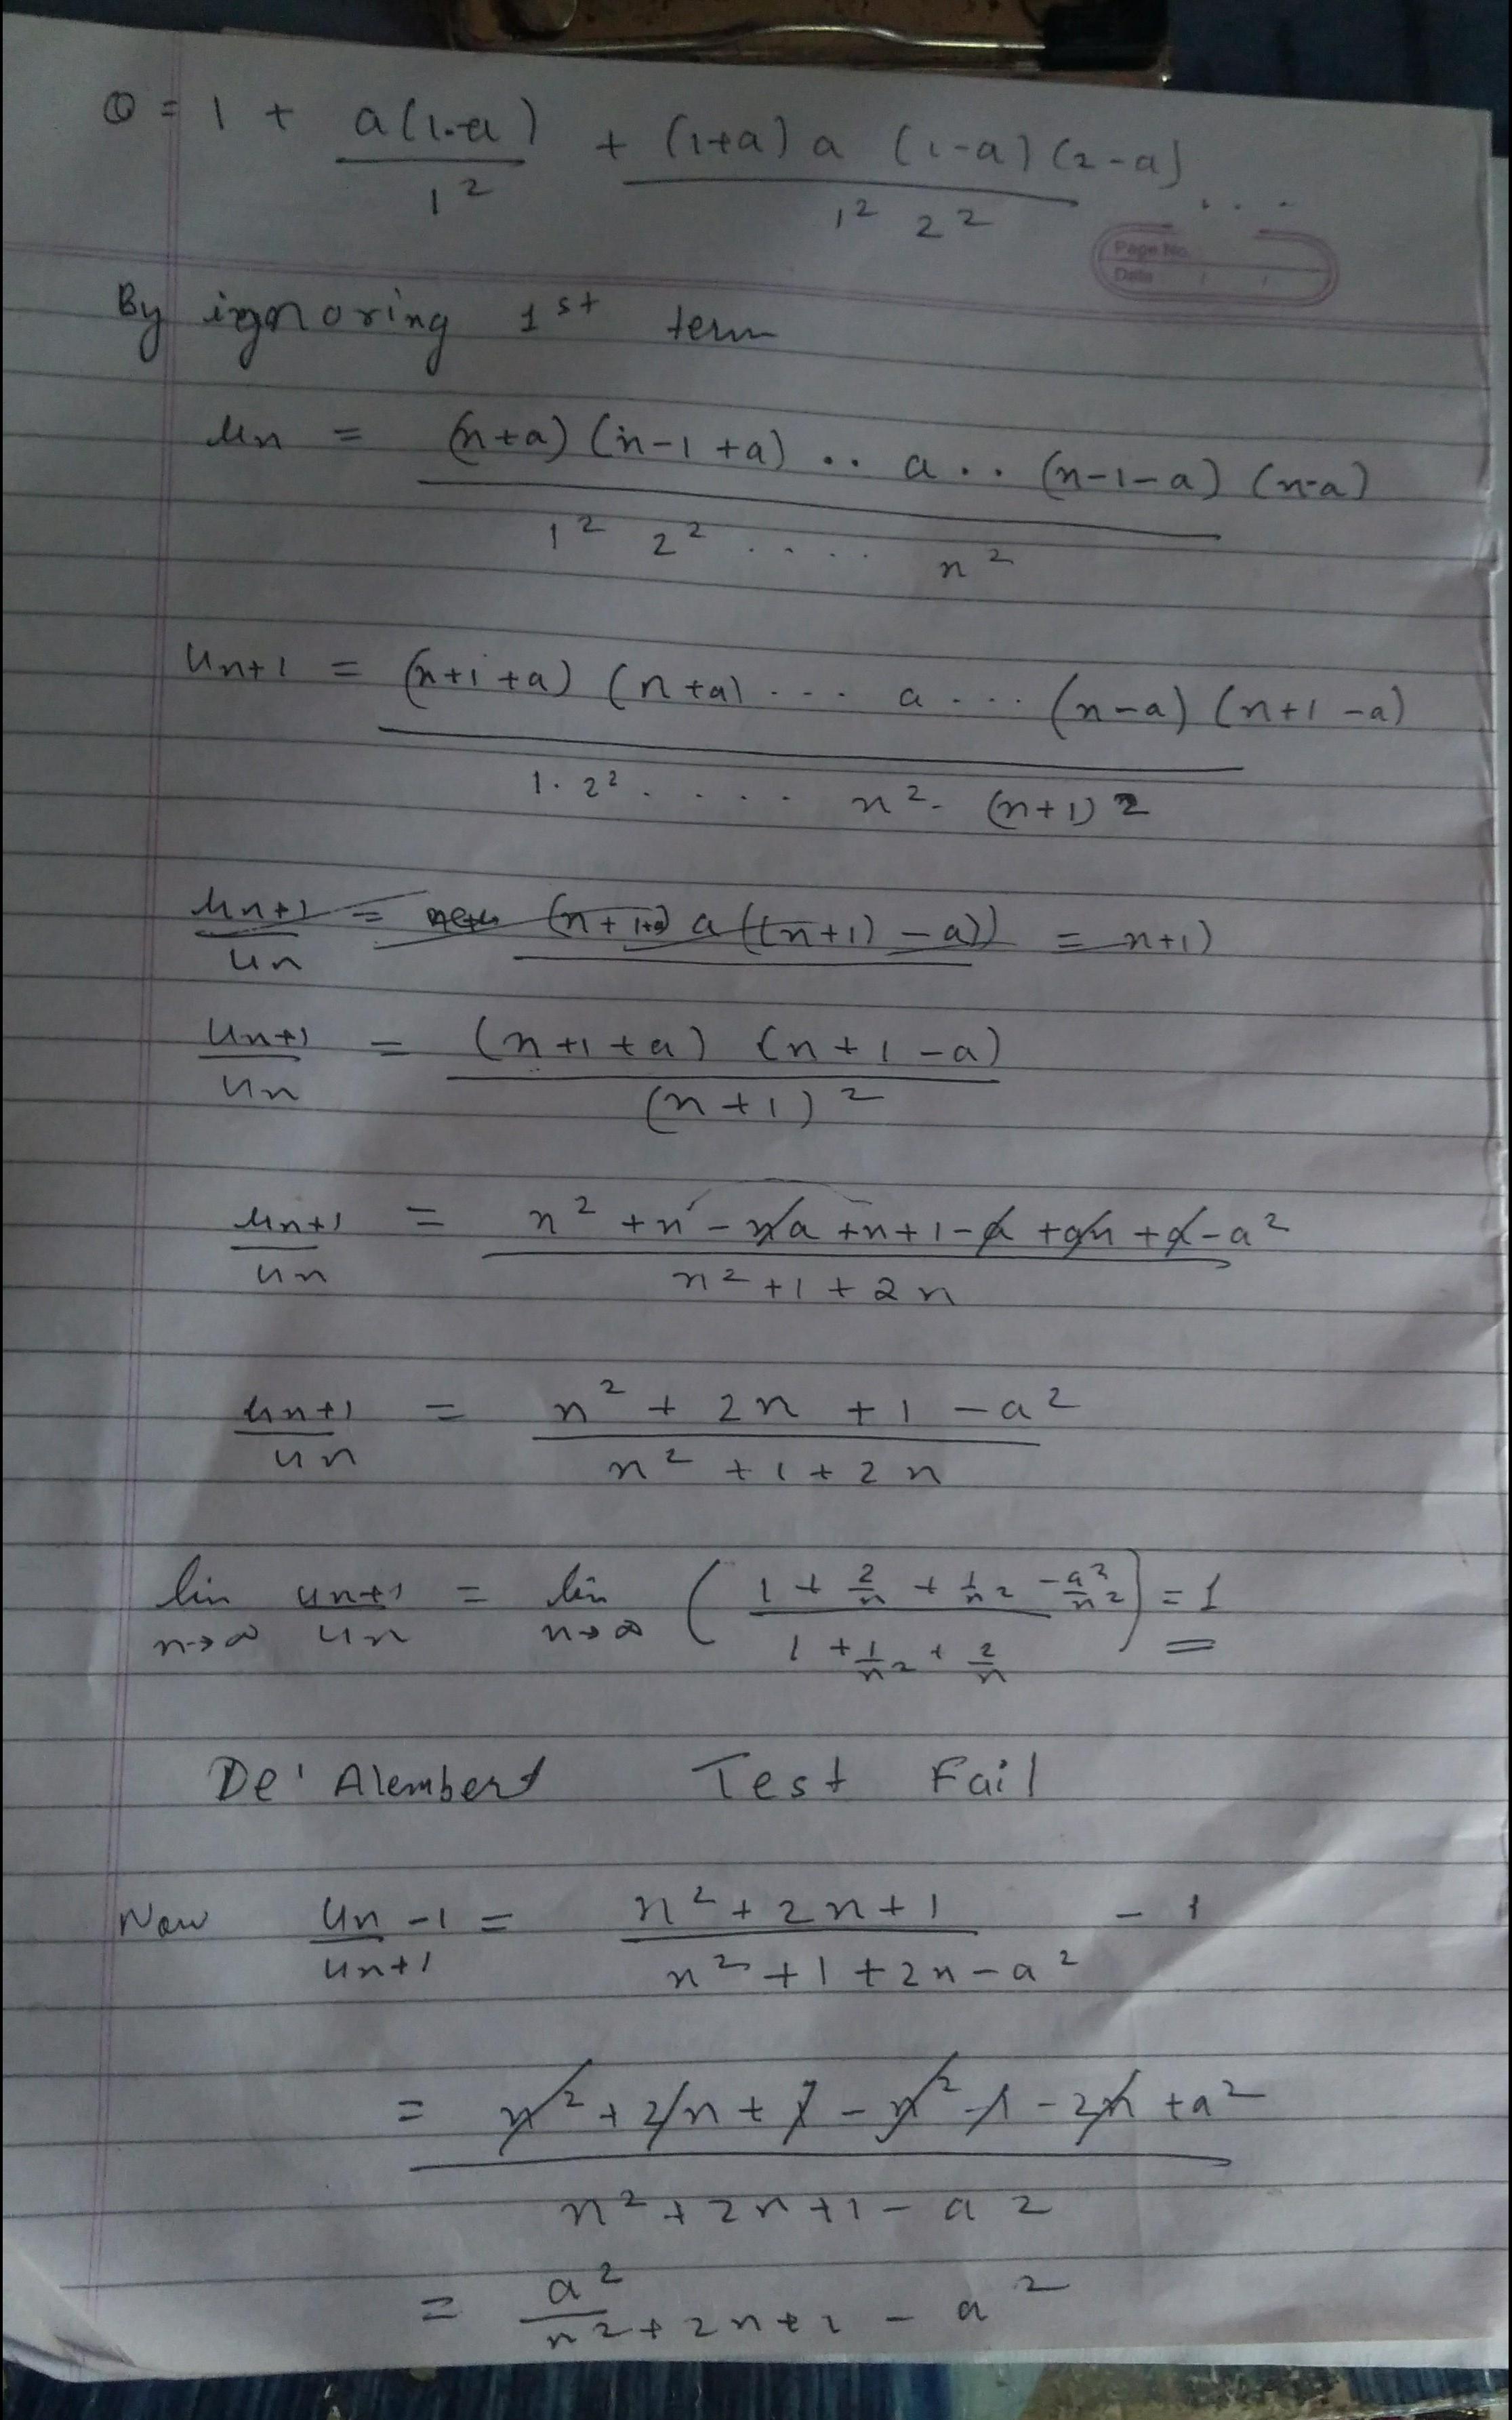 Q = 1 + a(1-a)/1² + (1+a) a (1-a) (2-a)/1² 2² ...
Page No.
Date / /
By ignoring 1st term
un = (n+a) (n-1+a) .. a .. (n-1-a) (n-a)/1² 2² .... n²
un+1 = (n+1+a) (n+a) ... a ... (n-a) (n+1-a)/1. 2² .... n². (n+1)²
un+1/un = (n+1+a) a ((n+1) - a)) = n+1)
un+1/un = (n+1+a) (n+1-a)/(n+1)²
un+1/un = n² + n - na + n + 1 - a + an + a - a²/n² + 1 + 2n
un+1/un = n² + 2n + 1 - a²/n² + 1 + 2n
lim n→∞ un+1/un = lim n→∞ (1 + 2/n + 1/n² - a²/n²/1 + 1/n² + 2/n) = 1
De' Alembert Test Fail
Now un/un+1 - 1 = n² + 2n + 1/n² + 1 + 2n - a² - 1
= n² + 2n + 1 - n² - 1 - 2n + a²/n² + 2n + 1 - a²
= a²/n² + 2n + 1 - a²